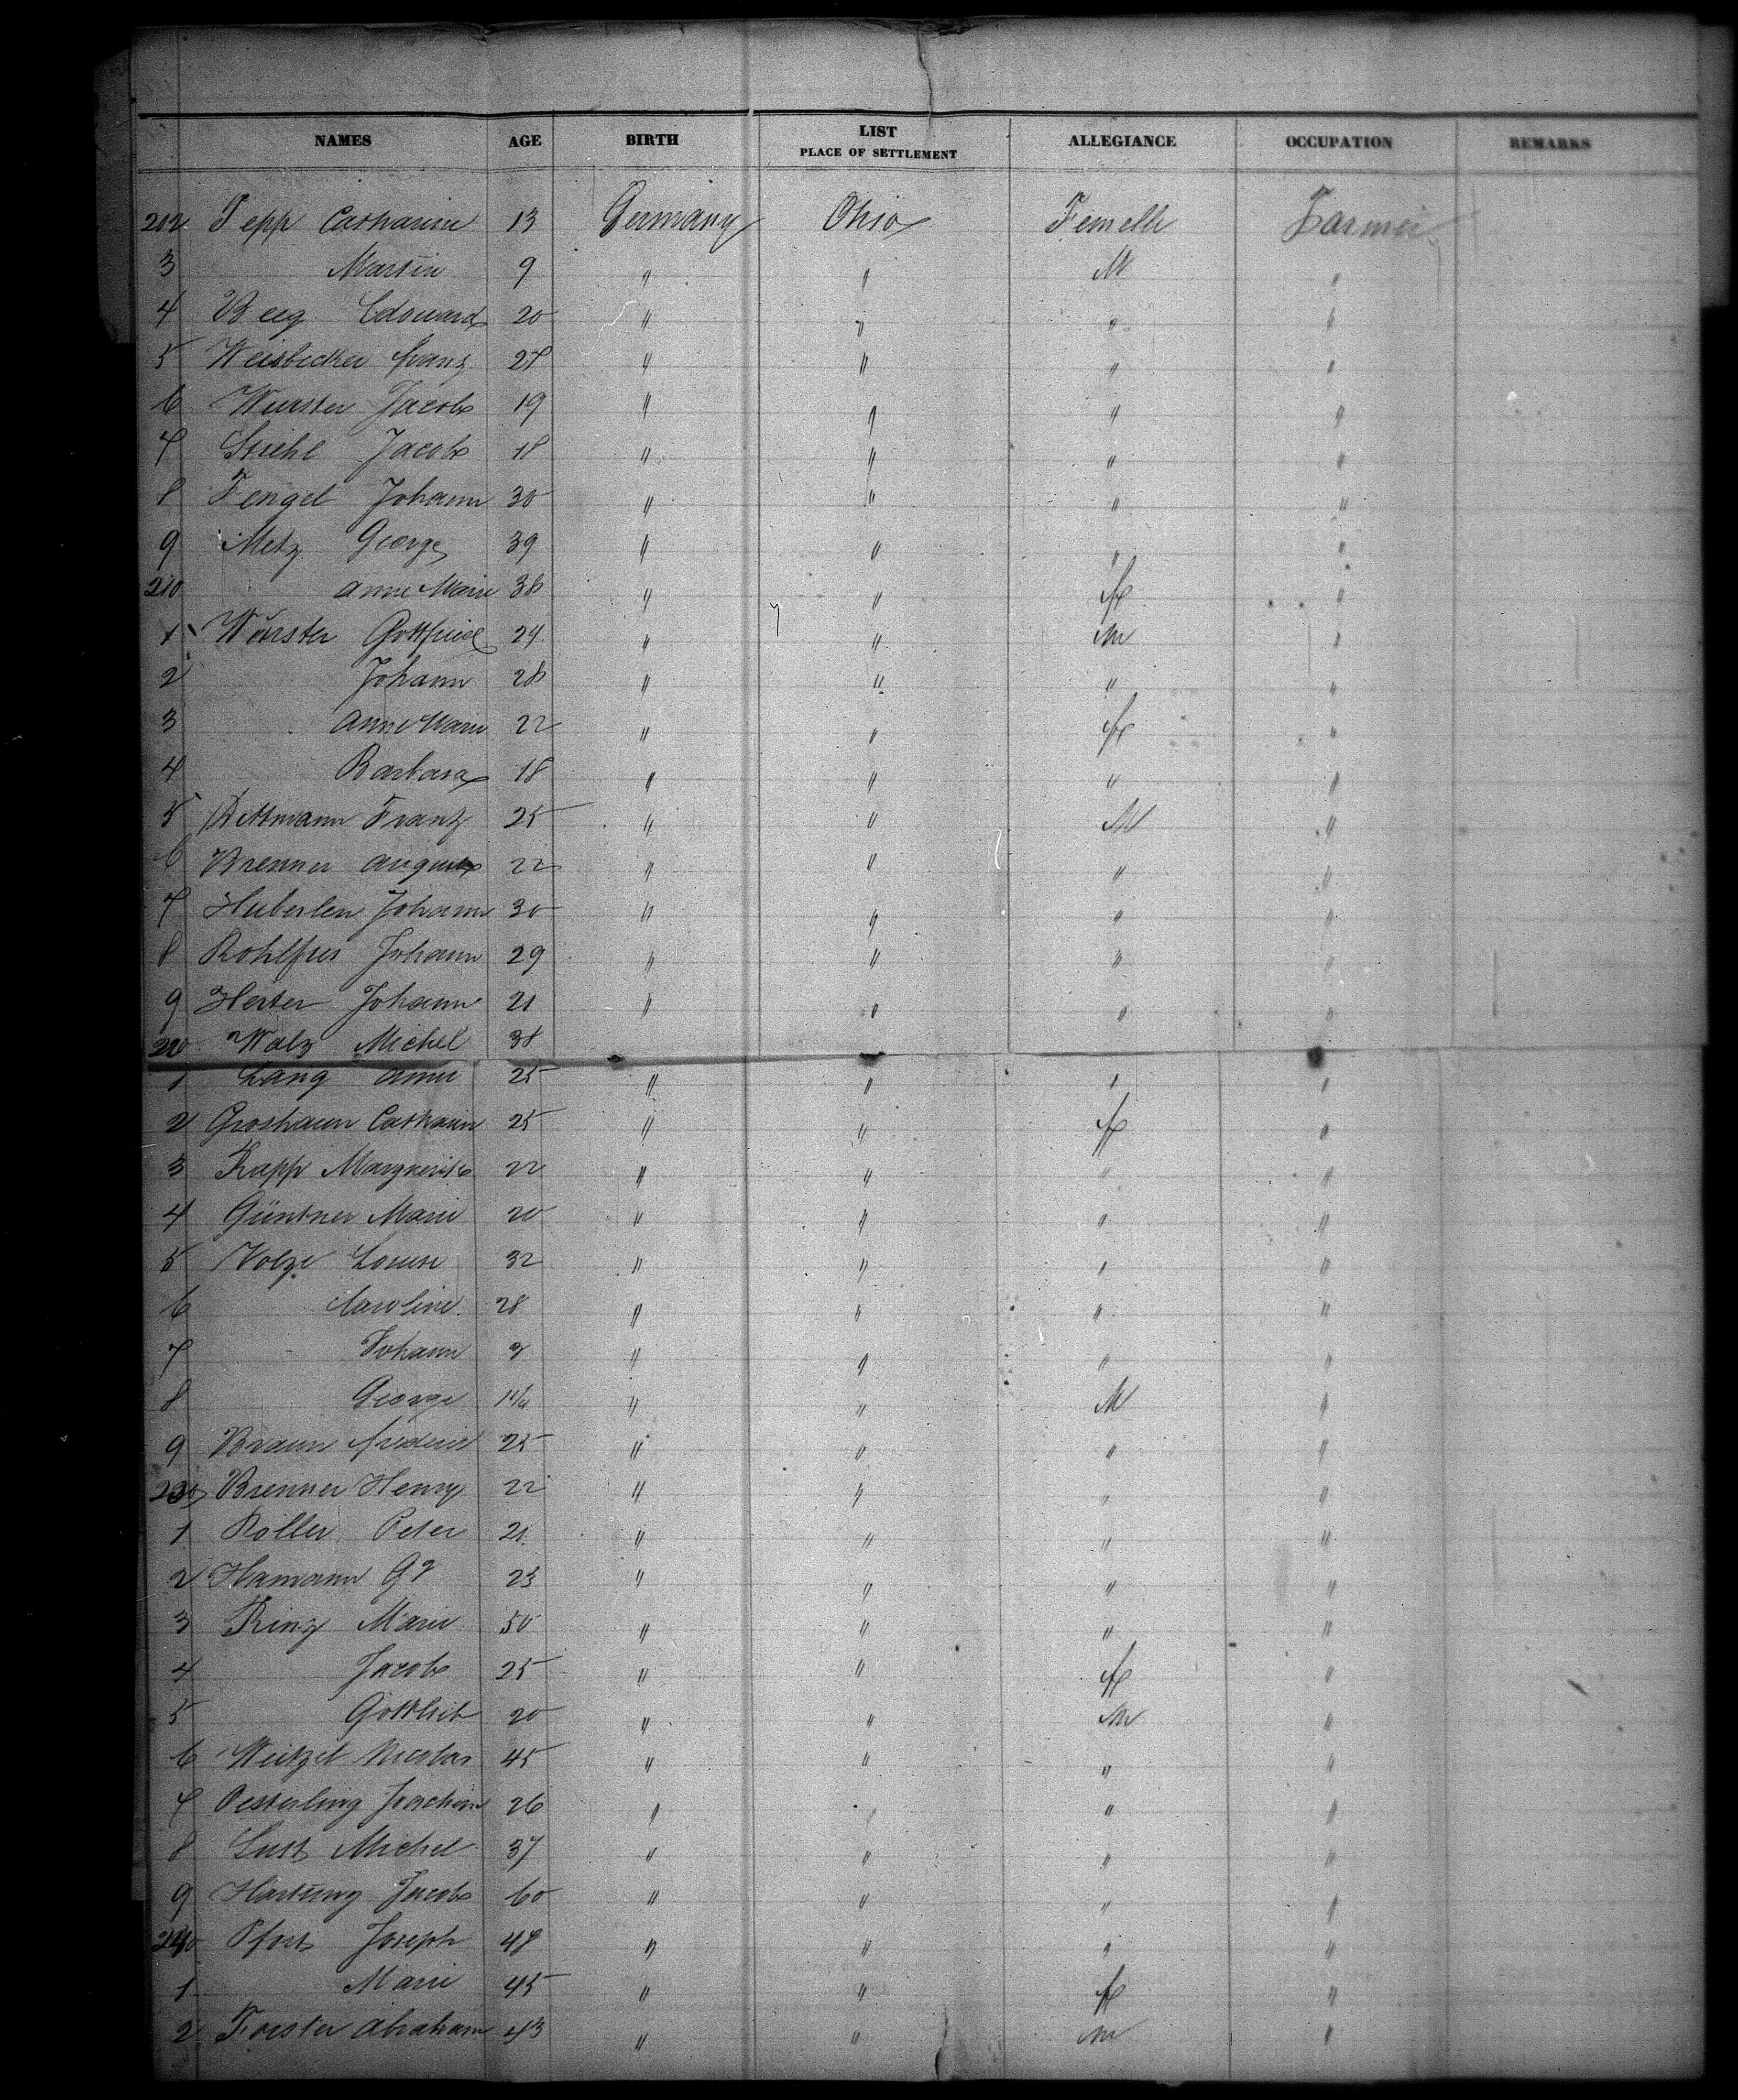 NAMES AGE BIRTH LIST PLACE OF SETTLEMENT ALLEGIANCE OCCUPATION REMARKS
202 Tepp Catharine 13 Germany Ohio Femelle Farmer
3 Martin 9 " " M "
4 Beeg Edouard 20 " " " "
5 Weisbecker franz " " " "
6 Wurster Jacob 19 " " " "
7 Jacob 18 " " " "
8 Fengel Johann 30 " " " "
9 Metz George 39 " " " "
210 Anne Marie 38 " " f "
1 Wurster Gottfried 24 " " m "
2 Johann 28 " " " "
3 Anne Marie 22 " " f "
4 Barbara 18 " " " "
5 Frantz 25 " " M "
6 Brenner August 22 " " " "
7 Huberlen Johann 30 " " " "
8 Rohlfus Johann 29 " " " "
9 Herter Johann 21 " " " "
220 Walz Michel 38
1 Lang Anne 25 " " " "
2 Catharin 25 " " f "
3 Rapp Marguerite 22 " " " "
4 Güntner Marie 20 " " " "
5 Volze Louise 32 " " " "
6 Caroline 28 " " " "
7 Johann " " " "
8 George " " M "
9 Braun frederic 25 " " " "
230 Brenner Henry 22 " " " "
1 Roller Peter 21 " " " "
2 Hamann 23 " " " "
3 Marie 50 " " " "
4 Jacob 25 " " f "
5 Gottlieb 20 " " m "
6 Weitzel Nicolas 45 " " " "
7 Oesterling Joachim 26 " " " "
8 Lust Michel 37 " " " "
9 Hartung Jacob 60 " " " "
240 Joseph 48 " " " "
1 Marie 45 " " f "
2 Forster Abraham 43 " " m "